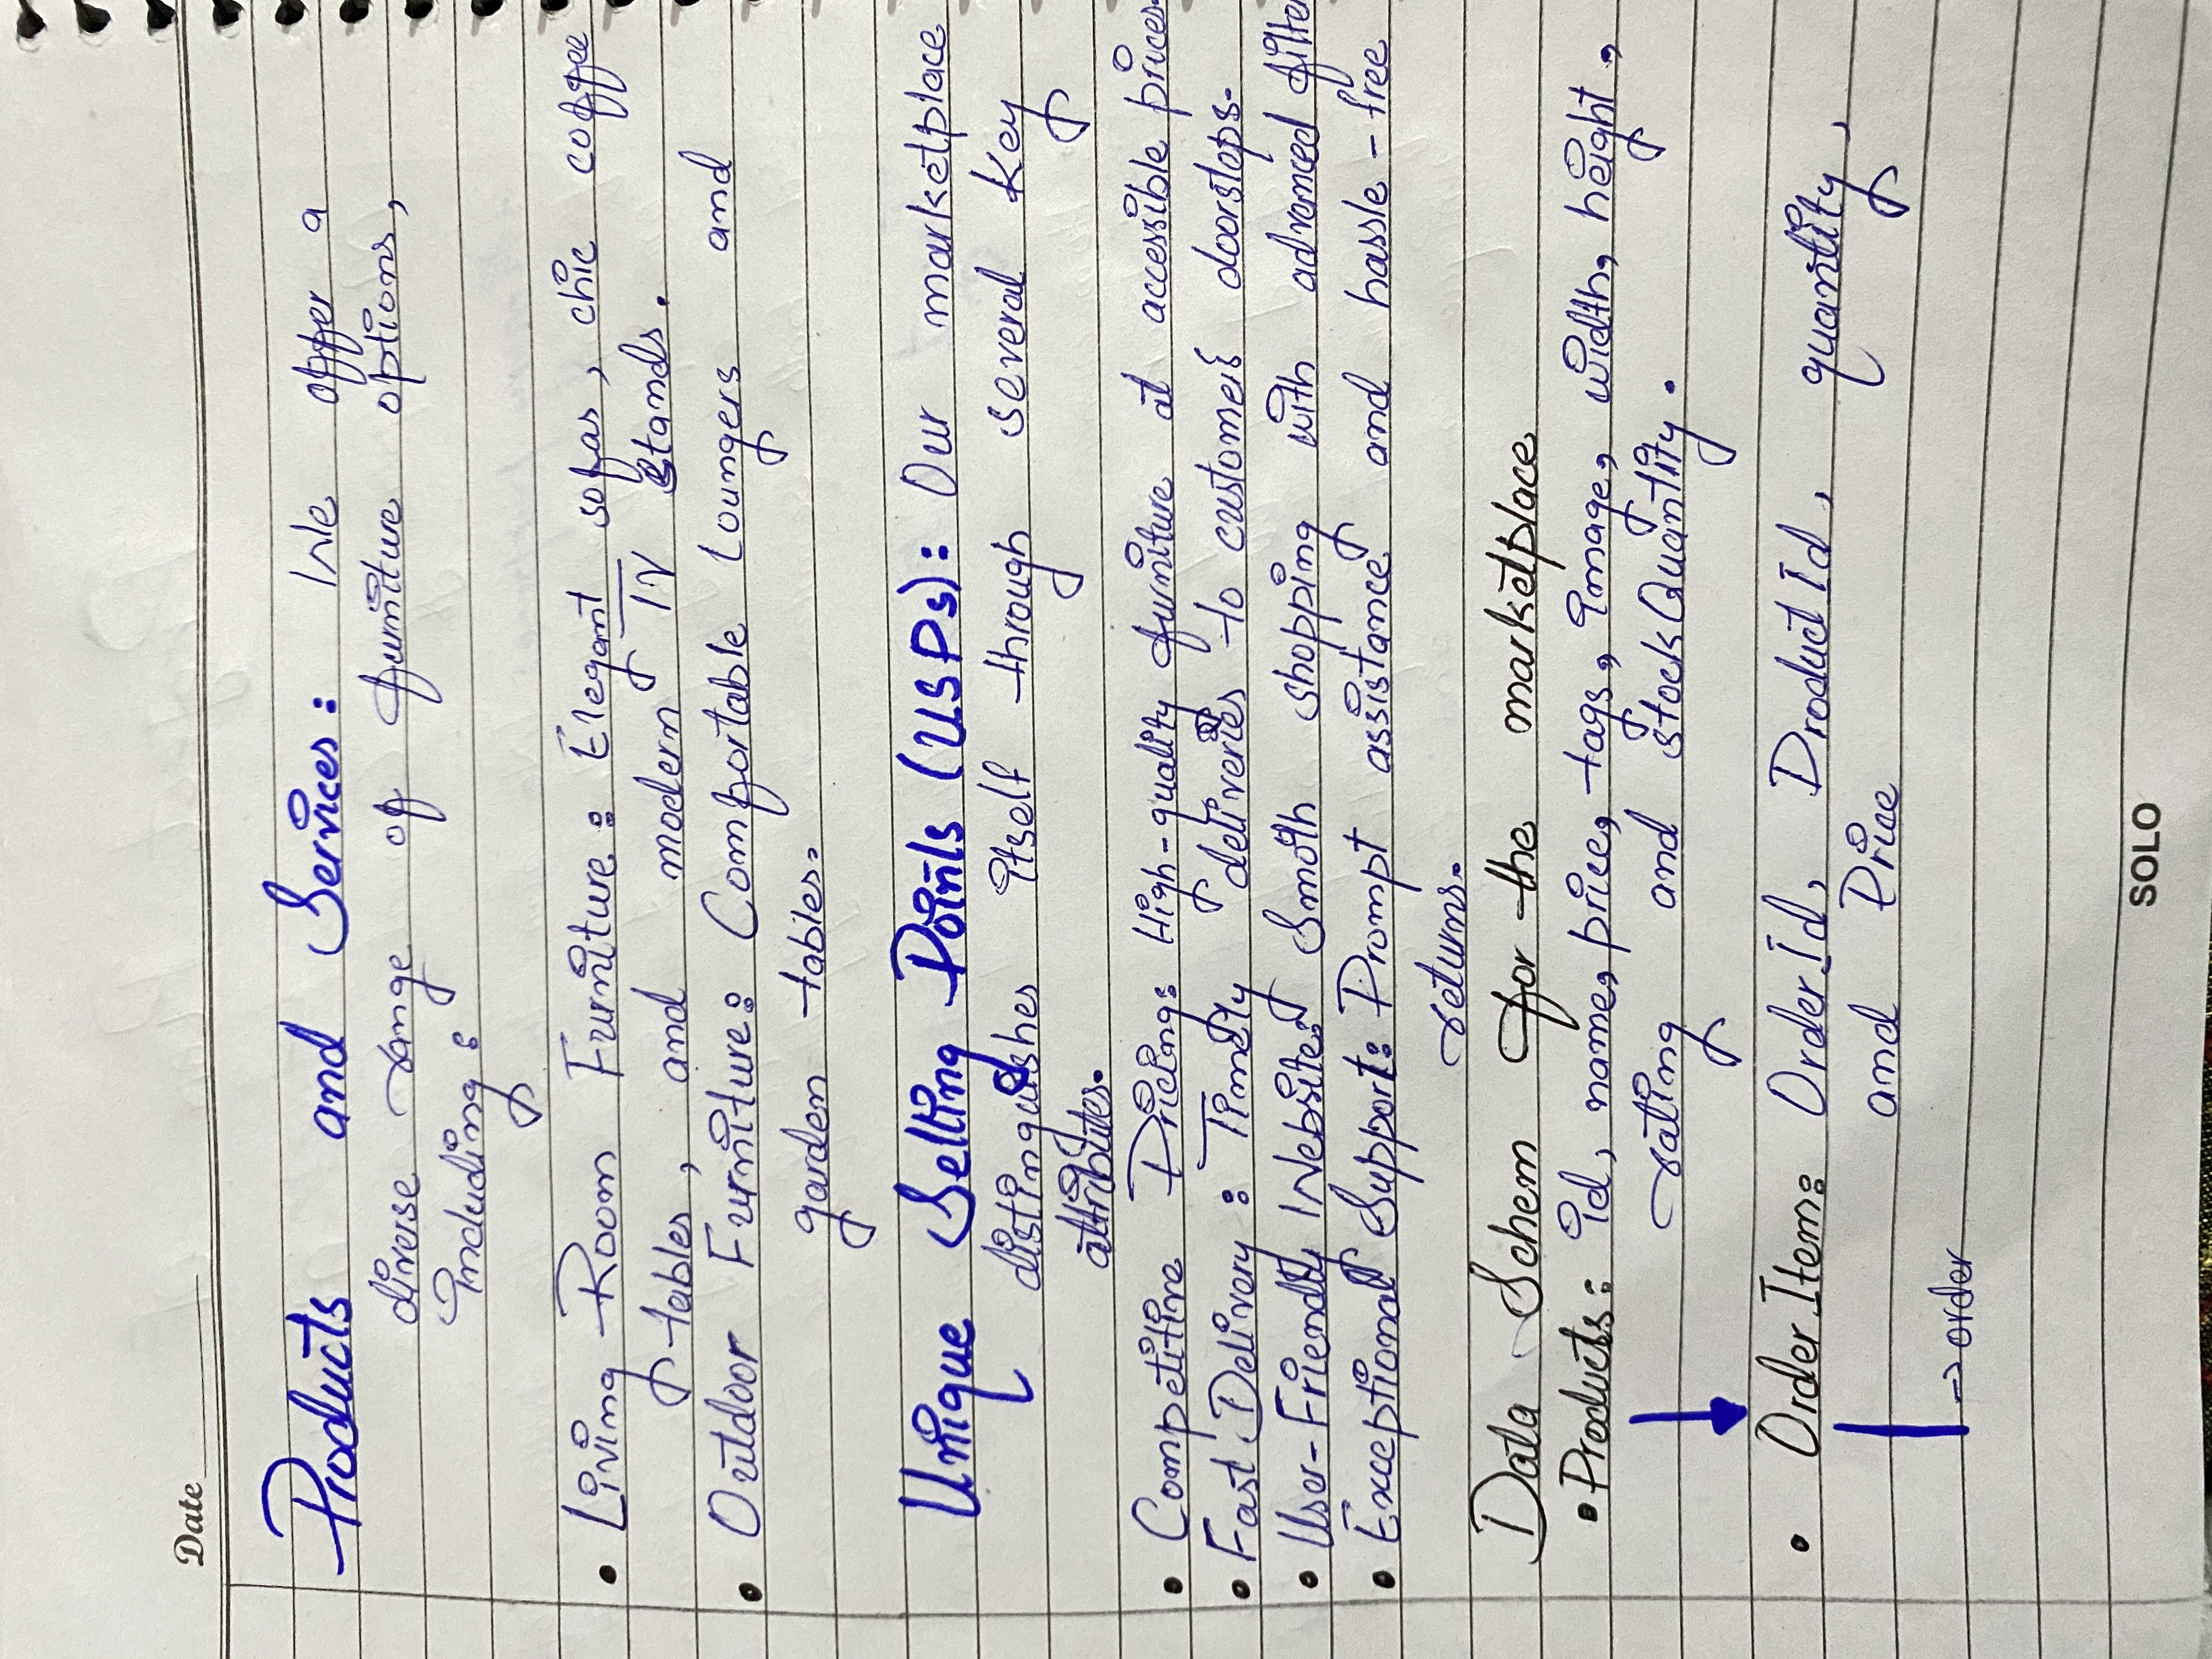 Date
Products and Services: We offer a
diverse range of furniture options,
Including:
• Living Room Furniture: Elegant sofas, chic coffee
tables, and modern TV stands.
• Outdoor Furniture: Comfortable Loungers and
garden tables.
Unique Selling Points (USPs): Our marketplace
distinguishes itself through several key
attributes.
• Competitive Pricing: High-quality furniture at accessible prices.
• Fast Delivery: Timely deliveries to customers' doorsteps.
• User-Friendly Website: Smoth shopping with advanced filte
• Exceptional Support: Prompt assistance and hassle-free
returns.
Data Schem for the marketplace
• Products: id, name, price, tags, image, width, height,
rating and stockQuantity.
• OrderItem: OrderId, ProductId, quantity,
and Price
→ order
SOLO